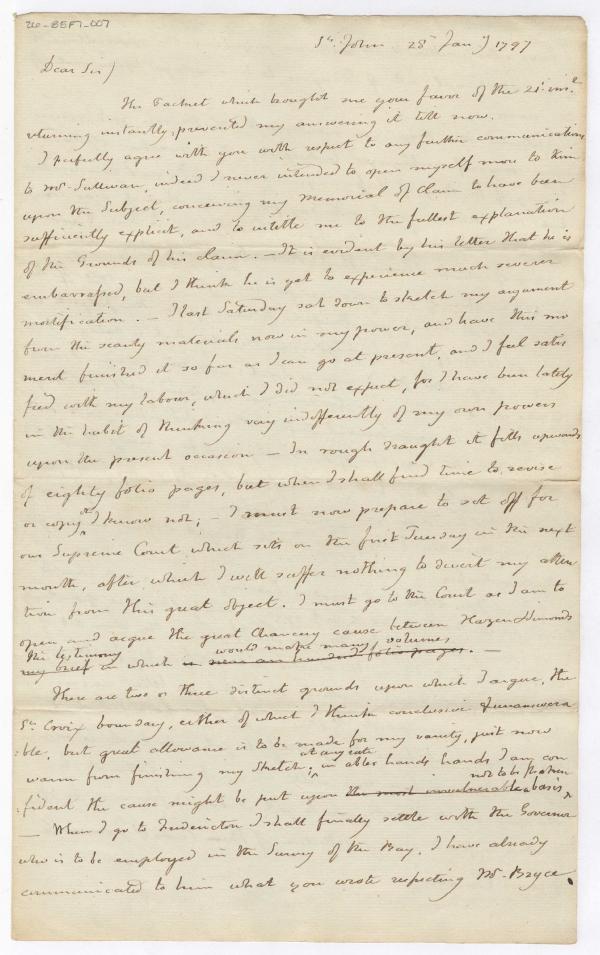 26-B5F7-007
St. John 28th Jany 1797
Dear Sir)
The Packet which brought me your favor of the 21. inst.
returning instantly, prevented my answering it till now.
I perfectly agree with you with respect to any further communication
to Mr. Sullivan, indeed I never intended to open myself more to him
upon the Subject, conceiving my Memorial of Claim to have been
sufficiently explicit, and to intitle me to the fullest explanation
of the Grounds of his claim. — It is evident by his letter that he is
embarrassed, but I think he is yet to experience much severer
mortification. — I last Saturday sat down to sketch my argument
from the scanty materials now in my power, and have this mo
ment finished it so far as I can go at present, and I feel satis
fied with my labour, which I did not expect, for I have been lately
in the habit of thinking very indifferently of my own powers
upon the present occasion — In rough draught it fills upwards
of eighty folio pages, but when I shall find time to revise
or copy it I know not; — I must now prepare to set off for
our Supreme Court which sits on the first Tuesday in the next
month, after which I will suffer nothing to divert my atten
tion from this great object. I must go to the Court as I am to
open and argue the great Chancery cause between Hazen & Simonds
the testimony would make many volumes
my brief in which is nine an hundred folio pages. —
There are two or three distinct grounds upon which I argue, the
St. Croix boundary, either of which I think conclusive & unanswera
:ble, but great allowance is to be made for my vanity, just now
warm from finishing my Sketch; at any rate in abler hands hands I am con
not to be shaken
:fident the cause might be put upon the most invulnerable basis
— When I go to Fredericton I shall finally settle with the Governor
who is to be employed in the Survey of the Bay. I have already
communicated to him what you wrote respecting Mr. Bryce.